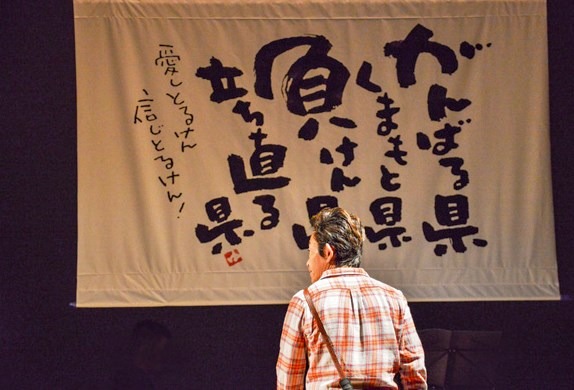 がんばる県
くまもと県
負けん県
立ち直る県
愛しとるけん
信じとるけん!